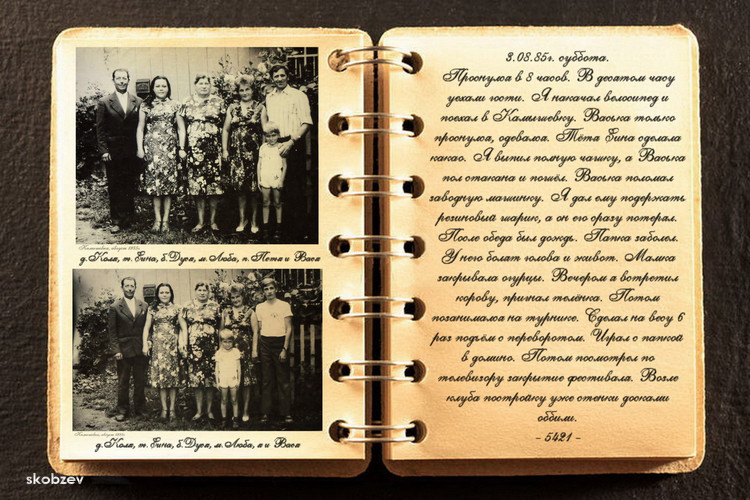 Камышевка, август 1985г.
д.Коля, т.Гина, б.Дуся, м.Люба, п.Петя и Вася
д.Коля, т.Гина, б.Дуся, м.Люба, я и Вася
3.08.85г. суббота.
Проснулся в 8 часов. В десятом часу
уехали гости. Я накачал велосипед и
поехал в Камышевку. Васька только
проснулся, одевался. Тётя Гина сделала
какао. Я выпил полную чашку, а Васька
пол стакана и пошёл. Васька поломал
заводную машинку. А дал ему подержать
резиновый шарик, а он его сразу потерял.
После обеда был дождь. Папка заболел.
У него болят голова и живот. Мамка
закрывала огурцы. Вечером я встретил
корову, пригнал телёнка. Потом
позанимался на турнике. Сделал на весу 6
раз подъём с переворотом. Играл с папкой
в домино. Потом посмотрел по
телевизору закрытие фестиваля. Возле
клуба постройку уже стенки досками
оббили.
- 5421 -
skobzev